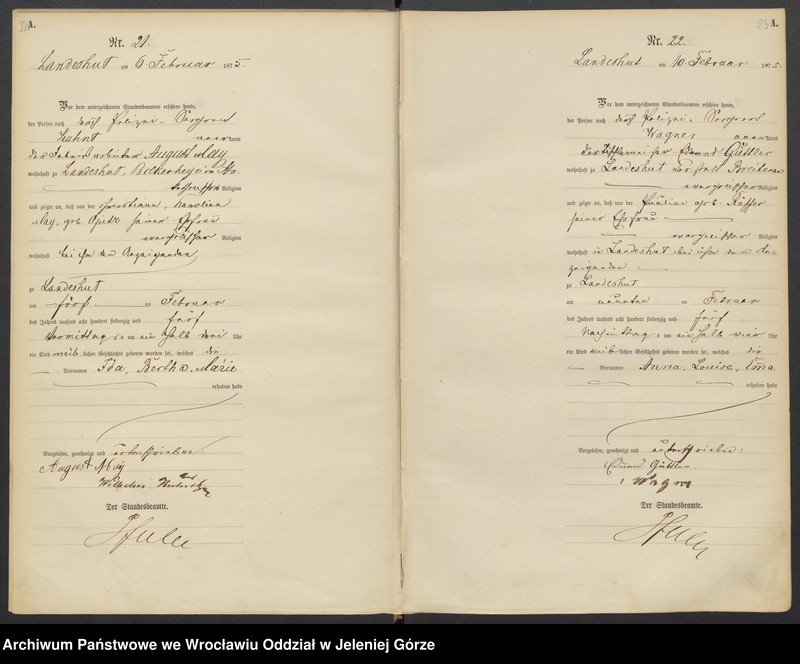 22 A.
Nr. 21.
Landeshut am 6. Februar 1875.
Vor dem unterzeichneten Standesbeamten erschien heute,
der Person nach durch Polizei-Sergeant
Kuhnt kannt
der Fabrikarbeiter August May
wohnhaft zu Landeshut,
Religion
und zeigte an, daß von der Christiane, Karoline
May, geb. Opitz seiner Ehefrau
evangelischer Religion
wohnhaft bei ihm dem Anzeigenden,
zu Landeshut
am fünf ten Februar
des Jahres tausend acht hundert siebenzig und fünf
Vormittags um ein halb drei Uhr
ein Kind weiblichen Geschlechts geboren worden sei, welches die
Vornamen Ida, Bertha, Marie
erhalten habe
Vorgelesen, genehmigt und unterschrieben.
August May
Wilhelm
Der Standesbeamte.
23 A.
Nr. 22.
Landeshut am 10. Februar 1875.
Vor dem unterzeichneten Standesbeamten erschien heute,
der Person nach durch Polizei-Sergeant
Wagner kannt
der Eduard Güttler
wohnhaft zu Landeshut
evangelischer Religion
und zeigte an, daß von der Pauline geb.
seiner Ehefrau
evangelischer Religion
wohnhaft in Landeshut bei ihm dem An-
zeigenden
zu Landeshut
am neunten Februar
des Jahres tausend acht hundert siebenzig und fünf
Nachmittags um ein halb vier Uhr
ein Kind weiblichen Geschlechts geboren worden sei, welches die
Vornamen Anna, Louise, Ema
erhalten habe
Vorgelesen, genehmigt und unterschrieben:
Eduard Güttler.
Wagner
Der Standesbeamte.
Archiwum Państwowe we Wrocławiu Oddział w Jeleniej Górze